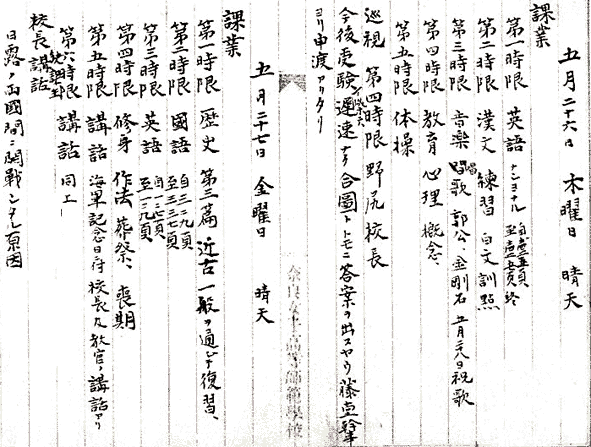 五月二十六日 木曜日 晴天
課業
第一時限 英語 ナショナル 自壹五頁 至壹五頁終
第二時限 漢文 練習 白文訓點
第三時限 音楽 唱歌 郭公、金剛石 五月二八日祝歌
第四時限 教育 心理 概念、
第五時限 体操
巡視 第四時限 野尻校長
今後受験ノ際ハ遅速ナク合圖トトモニ答案ヲ出スヤウ藤堂
ヨリ申渡アリタリ
五月二十七日 金曜日 晴天
課業
第一時限 歴史 第三篇 近古一般ヲ通シテ復習、
第二時限 國語 自三二九頁 至三三七頁
第三時限 英語 自一七頁 至一九頁
第四時限 修身 作法 葬祭、喪期
第五時限 講話 海軍記念日ニ付校長及教官ノ講話アリ
第六時限 講話 同上
校長講話
日露ノ両國間ニ開戦シタル原因
奈良女子高等師範學校